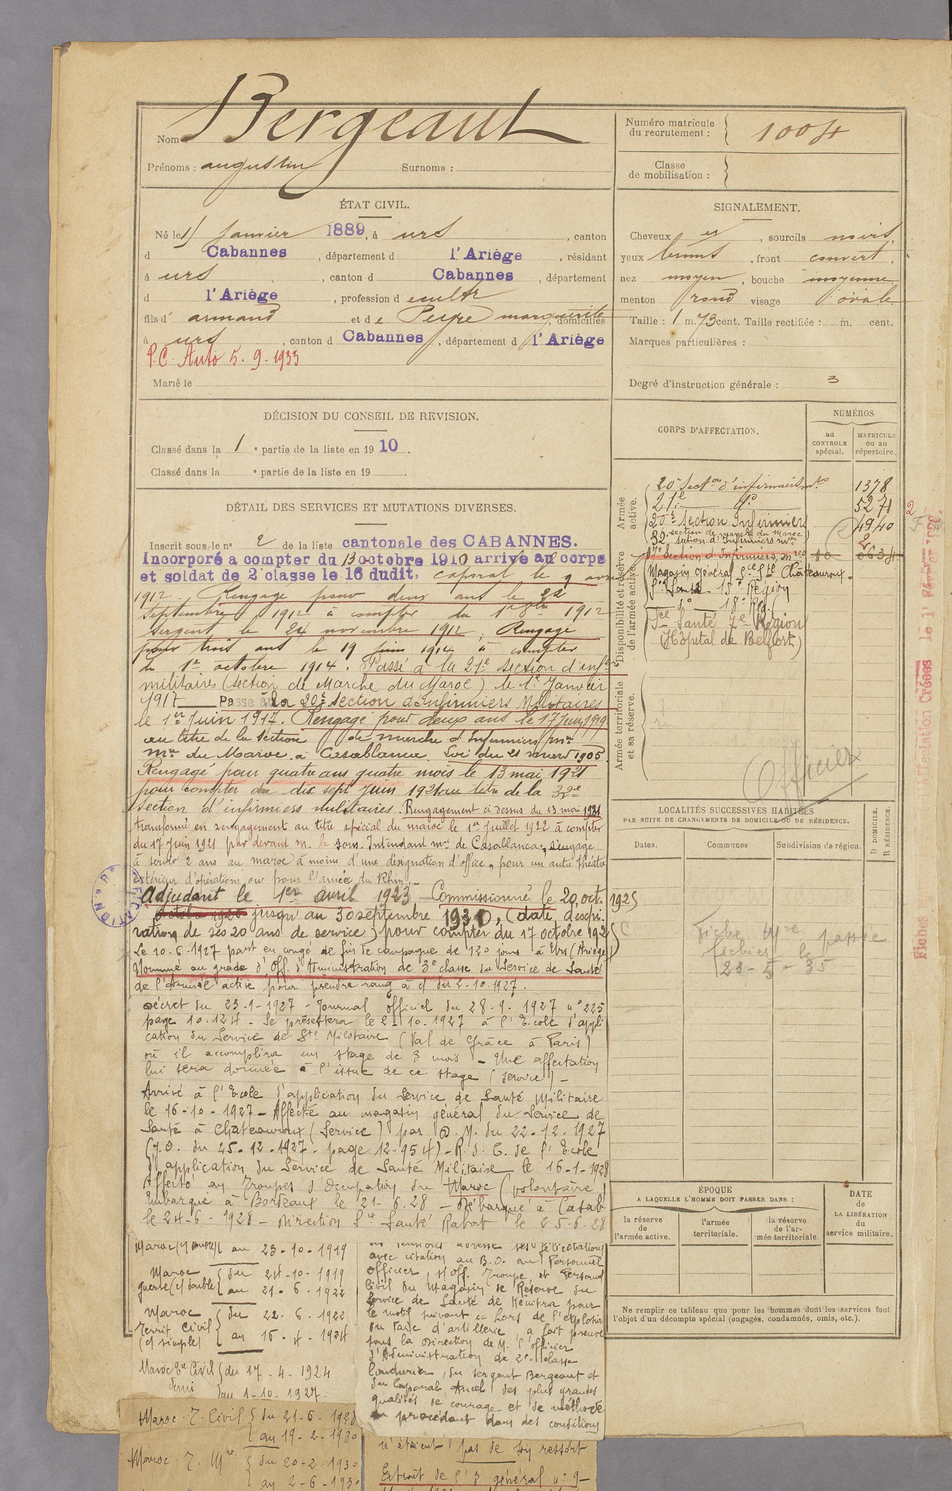 Nom Bergeaut
Prénoms : augustin Surnoms :
Numéro matricule du recrutement : 1004
Classe de mobilisation :
ÉTAT CIVIL.
Né le 15 Janvier 1889, à urs , canton
d Cabannes , département d l'Ariège , résidant
à urs , canton d Cabannes , département
d l'Ariège , profession d cultr
fils d' armand et de Peype marguerite, domiciliés
à urs , canton d Cabannes , département d l'Ariège
P.C. Auto 5.9.1933
Marié le
SIGNALEMENT.
Cheveux et , sourcils noirs,
yeux bruns , front couvert,
nez moyen , bouche moyenne,
menton rond visage ovale
Taille : 1 m. 73 cent. Taille rectifiée : m. cent.
Marques particulières :
Degré d'instruction générale : 3
DÉCISION DU CONSEIL DE REVISION.
Classé dans la 1e partie de la liste en 1910.
Classé dans la e partie de la liste en 19
DÉTAIL DES SERVICES ET MUTATIONS DIVERSES.
Inscrit sous le n° 2 de la liste cantonale des CABANNES.
Incorporé a compter du 13 octobre 1910 arrivé au corps
et soldat de 2e classe le 16 dudit, caporal le 9 avril
1912. Rengagé pour deux ans le 22
septembre 1912 à compter du 1er 8bre 1912
Sergent le 24 novembre 1912, Rengagé
pour trois ans le 19 Juin 1914 à compter
du 1er octobre 1914. Passé à la 21e section d'infrs
militaires (section de Marche du Maroc) le 1er Janvier
1917 Passé à la 20e section d'Infirmiers Militaires
le 1er Juin 1917. Rengagé pour deux ans le 17 Juin 1919
au titre de la section de marche d'Infirmiers mres
du Maroc à Casablanca. Loi du 21 mars 1905.
Rengagé pour quatre ans quatre mois le 13 mai 1921
pour compter du dix sept Juin 1921 au titre de la 32e
section d'infirmiers militaires. Rengagement ci dessus du 13 mai 1921
transformé en rengagement au titre spécial du maroc le 1er Juillet 1922 à compter
du 17 Juin 1921 par devant m. le sous. Intendant mre de Casablanca, s'engage
à servir 2 ans au maroc à moins d'une désignation d'office, pour un autre théâtre
extérieur d'opérations, ou pour l'armée du Rhin.
Adjudant le 1er avril 1923 - Commissionné le 20 oct. 1925
jusqu'au 30 septembre 1930, (date d'expi-
ration de ses 20 ans de service) pour compter du 17 octobre 1925
Le 10.6.1927 part en congé de fin de campagne de 120 jours à Urs (Ariège)
Nommé au grade d'Off. d'Administration de 3e classe du Service de Santé
de l'armée active pour prendre rang à cf du 2.10.1927.
Décret du 23.9.1927 - Journal officiel du 28.9.1927 n° 225
page 10.124 - Se présentera le 21.10.1927 à l'Ecole d'appli
cation du Service de Sté Militaire (Val de Grâce à Paris)
où il accomplira un stage de 3 mois - Une affectation
lui sera donnée à l'issue de ce stage (service) -
Arrivé à l'Ecole d'application du Service de Santé Militaire
le 16-10-1927 - Affecté au magasin général du Service de
Santé à Chateauroux (Service) par D.M. du 22-12-1927
(J.O. du 25-12-1927 - page 12.954) - R.d.C. de l'Ecole
d'application du Service de Santé Militaire le 16-1-1928
Affecté aux Troupes d'Occupation du Maroc (volontaire)
Embarqué à Bordeaux le 21-6-28 - Débarqué à Casab.
le 24-6-1928 - Direction Sce Santé Rabat le 25-6-28
au 23-10-1919
Maroc guerre (c/ double) du 24-10-1919
au 21-6-1922
Maroc Territ. Civil (c/ simple) du 22-6-1922
au 16-4-1924
Maroc Tre Civil demi du 17-4-1924
au 1-10-1927.
Maroc T. Civil du 21-6-1928
au 19-2-1930
Maroc T. Mre du 20-2-1930
au 2-6-1930
adresse ses félicitations
avec citation au B.O. au Personnel
officier, s/off. Troupe et Personnel
Civil du Magasin de Réserve du
Service de Santé de Kénitra pour
le motif suivant : Lors de l'explosion
du Parc d'artillerie a fait preuve
sous la Direction de M. l'officier
d'Administration de 2e classe
, du Sergent Bergeaut et
du Caporal Ancel des plus grandes
qualités de courage et de méthode
en procédant dans des conditions
n'étaient pas de son ressort
Extrait de l'O. général n° 9
CORPS D'AFFECTATION.
NUMÉROS
au CONTROLE spécial.
MATRICULE ou au répertoire.
Armée active.
20e Section d'infirmiers mres 1378
21e d° 5271
20e Section Infirmiers 4940
section de marche du maroc
32e section d'Infirmiers mres
Disponibilité et réserve de l'armée active.
17e Section d'Infirmiers mres
Magasin Général Sce Sté Châteauroux.
Sce Santé 7e Région
(Hôpital de Belfort)
Armée territoriale et sa réserve.
Officier
LOCALITÉS SUCCESSIVES HABITÉES
PAR SUITE DE CHANGEMENTS DE DOMICILE OU DE RÉSIDENCE.
Dates.
Communes
Subdivision de région.
D DOMICILE.
R RÉSIDENCE.
Fiche mre passée
fichier le
23-5-35
ÉPOQUE
A LAQUELLE L'HOMME DOIT PASSER DANS :
la réserve de l'armée active.
l'armée territoriale.
la réserve de l'armée territoriale.
DATE de LA LIBÉRATION du service militaire.
Ne remplir ce tableau que pour les hommes dont les services font
l'objet d'un décompte spécial (engagés, condamnés, omis, etc.).